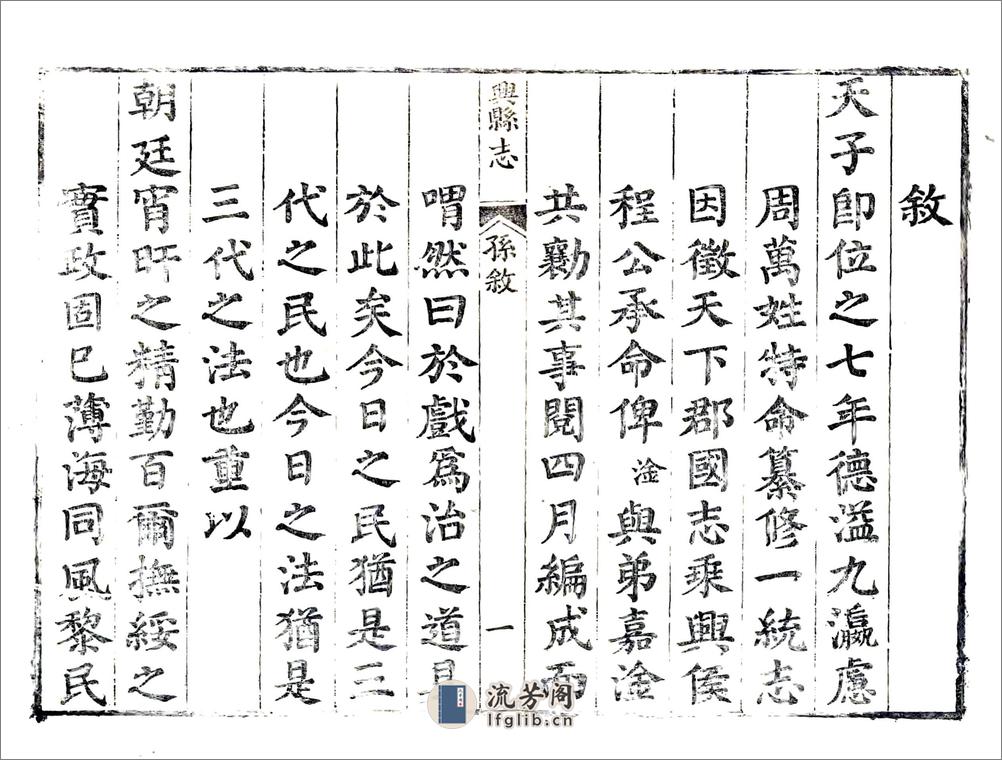 敘
天子卽位之七年德溢九瀛慮
周萬姓特命纂修一統志
因徵天下郡國志乘興侯
程公承命俾淦與弟嘉淦
共勷其事閱四月編成而
興縣志 孫敘 一
喟然曰於戲爲治之道
於此矣今日之民猶是三
代之民也今日之法猶是
三代之法也重以
朝廷宵旰之精勤百爾撫綏之
實政固已薄海同風黎民
流芳阁
lfglib.cn